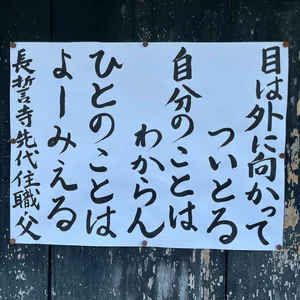 目は外に向かって
ついとる
自分のことは
わからん
ひとのことは
よーみえる
長誓寺先代住職・父